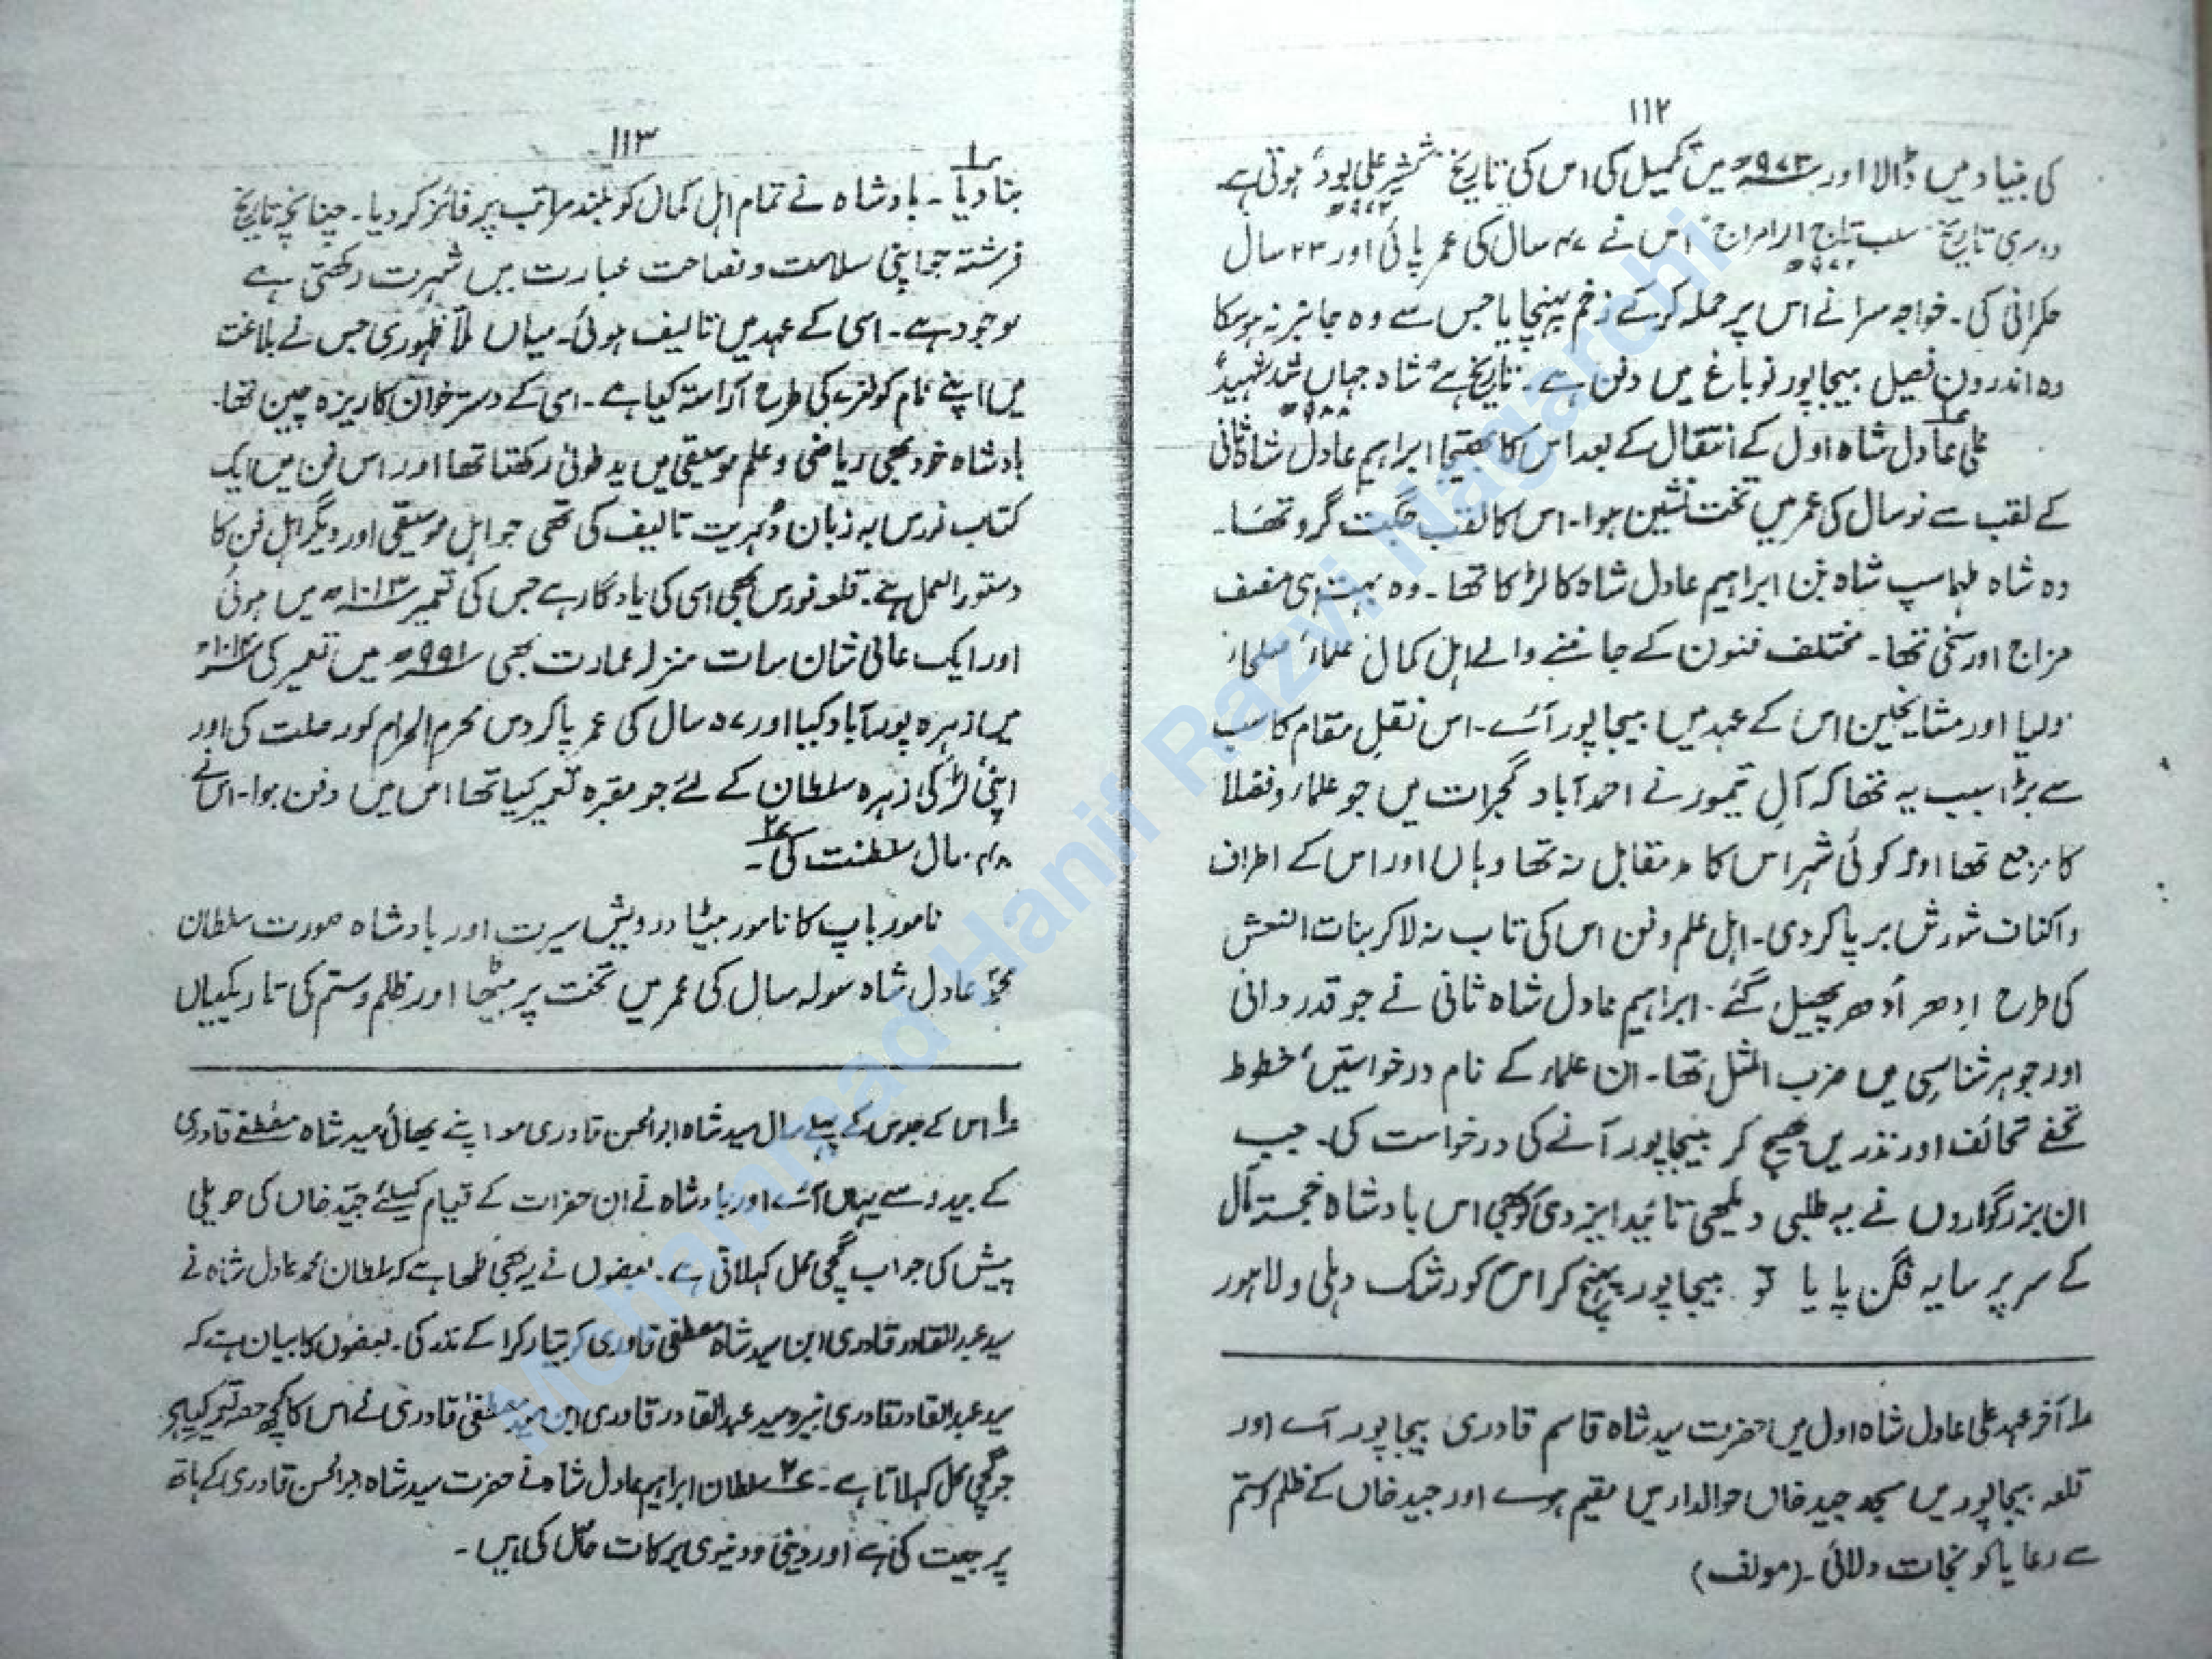 ۱۱۲
کی بنیاد میں ڈالا اور ۹۷۳ھ میں تکمیل کی اس کی تاریخ "شمشیر علی بود" ہوتی ہے
دوسری تاریخ "سلب تاج الرامراج" اس نے ۴۷ سال کی عمر پائی اور ۲۳ سال
حکمرانی کی۔ خواجہ سرا نے اس پر حملہ کرکے زخم پہنچایا جس سے وہ جانبر نہ ہوسکا
وہ اندرون فصیل بیجاپور نو باغ میں دفن ہے۔ تاریخ ہے "شاہ جہاں شد شہید"
۹۸۸ھ
علی عادل شاہ اول کے انتقال کے بعد اس کا بھتیجا ابراہیم عادل شاہ ثانی
کے لقب سے نو سال کی عمر میں تخت نشین ہوا۔ اس کا لقب جگت گرو تھا۔
وہ شاہ طہماسپ شاہ بن ابراہیم عادل شاہ کا لڑکا تھا۔ وہ بہت ہی منصف
مزاج اور سخی تھا۔ مختلف فنون کے جاننے والے اہل کمال علماء صلحاء
ولیا اور مشایخین اس کے عہد میں بیجاپور آئے۔ اس نقل مقام کا سب
سے بڑا سبب یہ تھا کہ آل تیمور نے احمد آباد گجرات میں جو علماء و فضلا
کا مرجع تھا اور کوئی شہر اس کا مد مقابل نہ تھا وہاں اور اس کے اطراف
و اکناف شورش برپا کر دی۔ اہل علم و فن اس کی تاب نہ لا کر بنات النعش
کی طرح اِدھر اُدھر پھیل گئے۔ ابراہیم عادل شاہ ثانی نے جو قدر دانی
اور جوہر شناسی میں ضرب المثل تھا۔ ان علماء کے نام درخواستیں، خطوط
تحفے تحائف اور نذریں بھیج کر بیجاپور آنے کی درخواست کی۔ جب
ان بزرگواروں نے یہ طلبی دیکھی تائید ایزدی کو بھی اس بادشاہ خجستہ مآل
کے سر پر سایہ فگن پایا تو بیجاپور پہنچ کر اس کو رشک دہلی و لاہور
۱ آخر عہد علی عادل شاہ اول میں حضرت سید شاہ قاسم قادری بیجاپور آے اور
قلعہ بیجاپور میں مسجد جید خاں حوالدار میں مقیم ہوے اور جید خاں کے ظلم و ستم
سے رعایا کو نجات دلائی۔ (مولف)
۱۱۳
بنا دیا۔ بادشاہ نے تمام اہل کمال کو بلند مراتب پر فائز کر دیا۔ چنانچہ تاریخ
فرشتہ جو اپنی سلاست و فصاحت عبارت میں شہرت رکھتی ہے
موجود ہے۔ اسی کے عہد میں تالیف ہوئی۔ میاں ملّا ظہوری جس نے بلاغت
میں اپنے نام کو طغرے کی طرح آراستہ کیا ہے۔ اسی کے دسترخوان کا ریزہ چین تھا۔
بادشاہ خود بھی ریاضی و علم موسیقی میں ید طولیٰ رکھتا تھا اور اس فن میں ایک
کتاب نورس بہ زبان دہریت تالیف کی تھی جو اہل موسیقی اور دیگر اہل فن کا
دستور العمل ہے۔ قلعہ نورس بھی اسی کی یادگار ہے جس کی تعمیر ۱۰۱۳ھ میں ہوئی
اور ایک عالی شان سات منزلہ عمارت بھی ۹۹۱ھ میں تعمیر کی ۱۰۱۲ھ
میں زہرہ پور آباد کیا اور ۵۷ سال کی عمر پا کر دس محرم الحرام کو رحلت کی اور
اپنی لڑکی زہرہ سلطان کے لئے جو مقبرہ تعمیر کیا تھا اس میں دفن ہوا۔ اس نے
۴۸ سال سلطنت کی۔
نامور باپ کا نامور بیٹا درویش سیرت اور بادشاہ صورت سلطان
محمد عادل شاہ سولہ سال کی عمر میں تخت پر بیٹھا اور ظلم و ستم کی تاریکیاں
۱ اس کے جلوس کے پہلے سال سید شاہ ابوالحسن قادری معہ اپنے بھائی سید شاہ مصطفے قادری
کے بیدر سے یہاں آئے اور بادشاہ نے ان حضرات کے قیام کیلئے جید خاں کی حویلی
پیش کی جو اب گچی محل کہلاتی ہے۔ بعضوں نے یہ بھی لکھا ہے کہ سلطان محمد عادل شاہ نے
سید عبدالقادر قادری ابن سید شاہ مصطفی قادری کو تیار کرا کے نذر کی۔ بعضوں کا بیان ہے کہ
سید عبدالقادر قادری نبیرہ سید عبدالقادر قادری ابن سید مصطفیٰ قادری نے اس کا کچھ حصہ تعمیر کیا ہے
جو گچی محل کہلاتا ہے۔ ۲ سلطان ابراہیم عادل شاہ نے حضرت سید شاہ ابوالحسن قادری کے ہاتھ
پر بیعت کی ہے اور دینی و دنیوی برکات حاصل کی ہیں۔
Mohammad Hanif Razvi Nagarchi